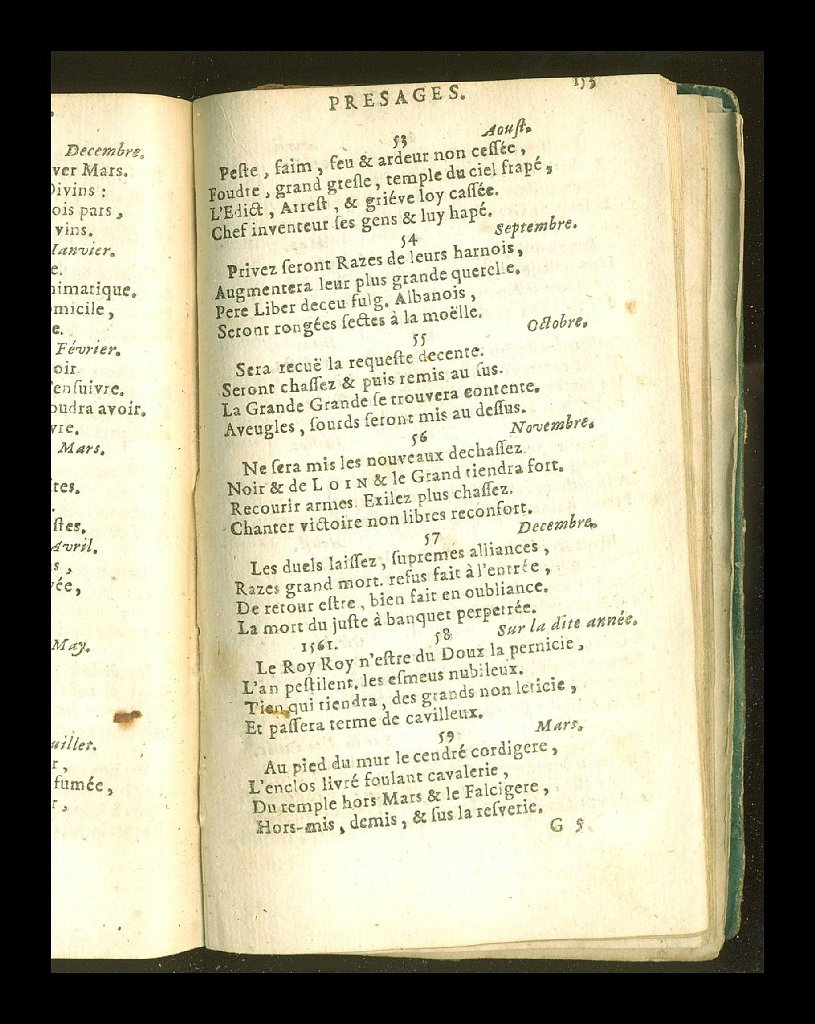 Decembre.
ver Mars.
Divins :
ois pars ,
vins.
Ianvier.
e.
nimatique.
micile ,
e.
Février.
oir
'ensuivre.
oudra avoir.
vre.
Mars.
tes.
.
ſtes.
Avril.
s ,
vée,
May.
uillet.
r ,
fumée,
r ,
PRESAGES. 153
53 Aouſt.
Peſte , faim , feu & ardeur non ceſſée ,
Foudre , grand greſle , temple du ciel frapé ,
L'Edict , Arreſt , & griéve loy caſſée.
Chef inventeur ſes gens & luy hapé.
54 Septembre.
Privez ſeront Razes de leurs harnois ,
Augmentera leur plus grande querelle.
Pere Liber deceu fulg. Albanois ,
Seront rongées ſectes à la moëlle.
55 Octobre.
Sera recuë la requeſte decente.
Seront chaſſez & puis remis au ſus.
La Grande Grande ſe trouvera contente.
Aveugles , ſourds ſeront mis au deſſus.
56 Novembre.
Ne ſera mis les nouveaux dechaſſez
Noir & de LOIN & le Grand tiendra fort.
Recourir armes. Exilez plus chaſſez.
Chanter victoire non libres reconfort.
57 Decembre.
Les duels laiſſez , ſupremes alliances ,
Razes grand mort. refus fait à l'entrée ,
De retour eſtre , bien fait en oubliance.
La mort du juſte à banquet perpetrée.
1561. 58 Sur la dite année.
Le Roy Roy n'eſtre du Doux la pernicie ,
L'an peſtilent, les eſmeus nubileux.
Tien qui tiendra , des grands non leticie ,
Et paſſera terme de cavilleux.
59 Mars.
Au pied du mur le cendré cordigere ,
L'enclos livré foulant cavalerie ,
Du temple hors Mars & le Falcigere ,
Hors-mis , demis , & ſus la reſverie.
G 5